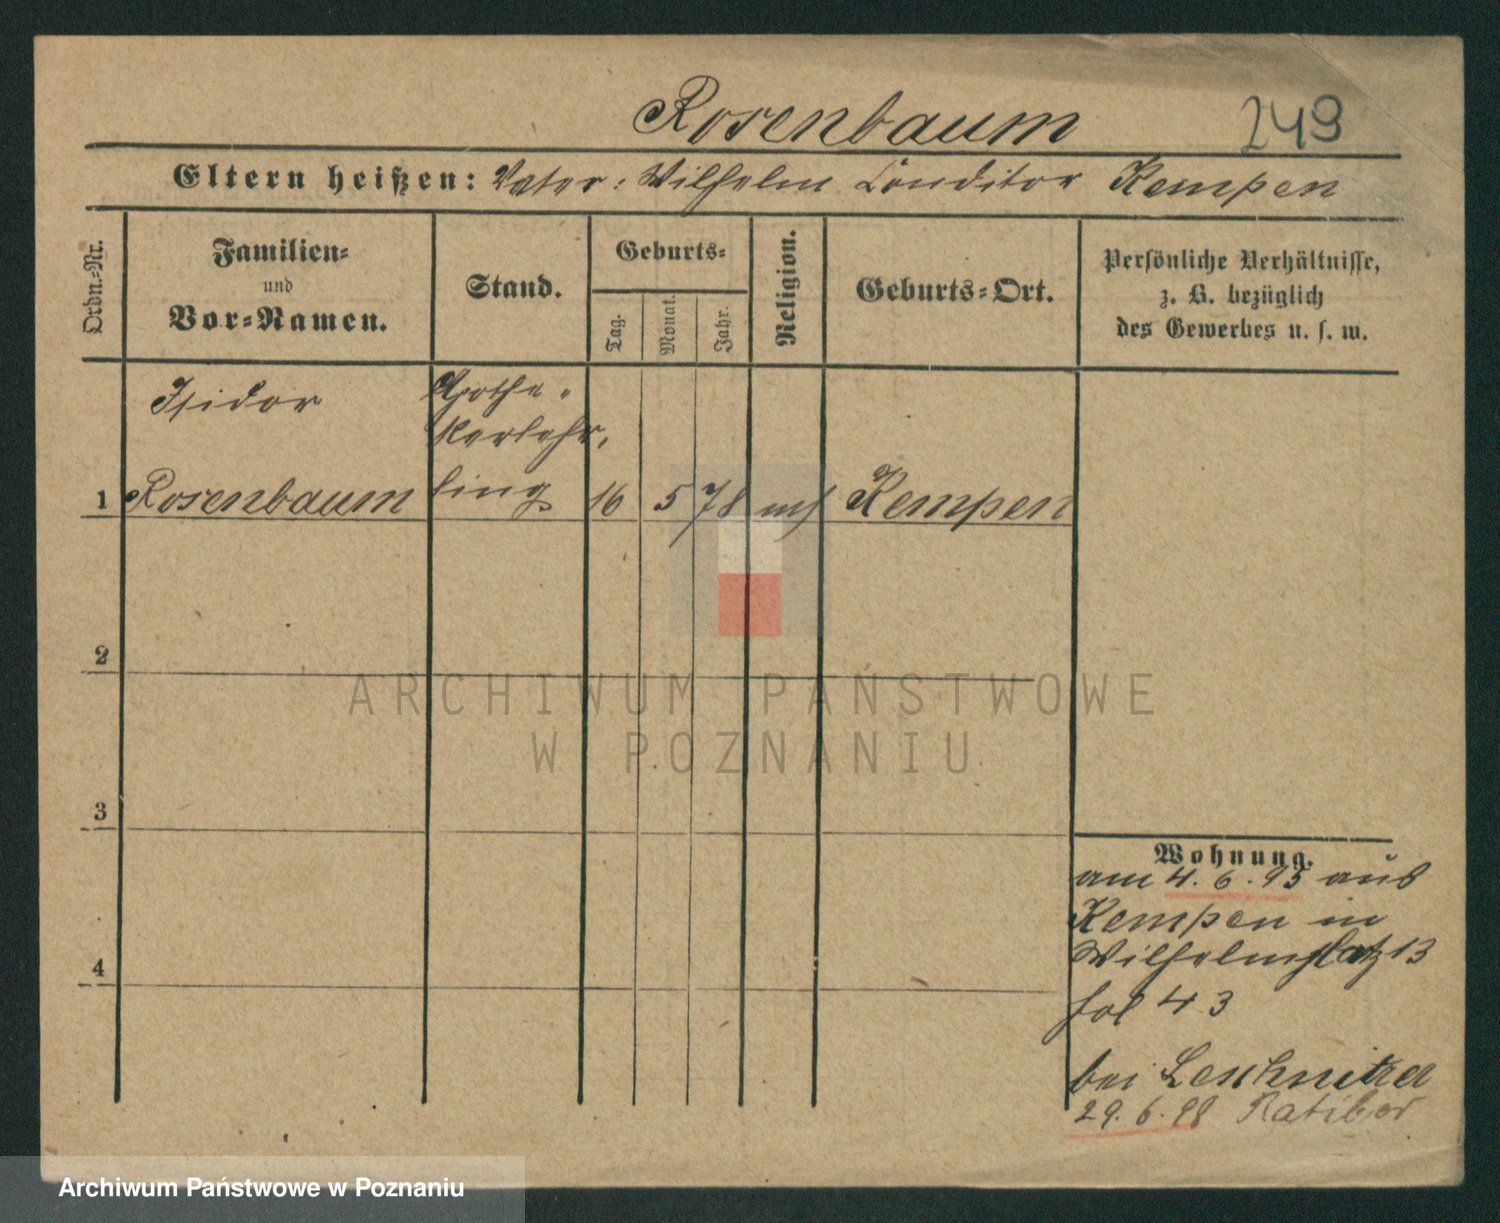 Rosenbaum 249
Eltern heißen: Vater: Wilhelm Conditor Kempen
Ordn.-Nr.
Familien-
und
Vor-Namen.
Stand.
Geburts-
Tag.
Monat.
Jahr.
Religion.
Geburts-Ort.
Persönliche Verhältnisse,
z. B. bezüglich
des Gewerbes u. s. w.
Isidor
Apothe-
kerlehr-
1 Rosenbaum ling 16 5 78 mos Kempen
2
3
4
Wohnung.
am 4. 6. 95 aus
Kempen in
Wilhelmsplatz 13
fol 43
bei Leschnitzer
29. 6. 98 Ratibor
ARCHIWUM PAŃSTWOWE
W POZNANIU
Archiwum Państwowe w Poznaniu